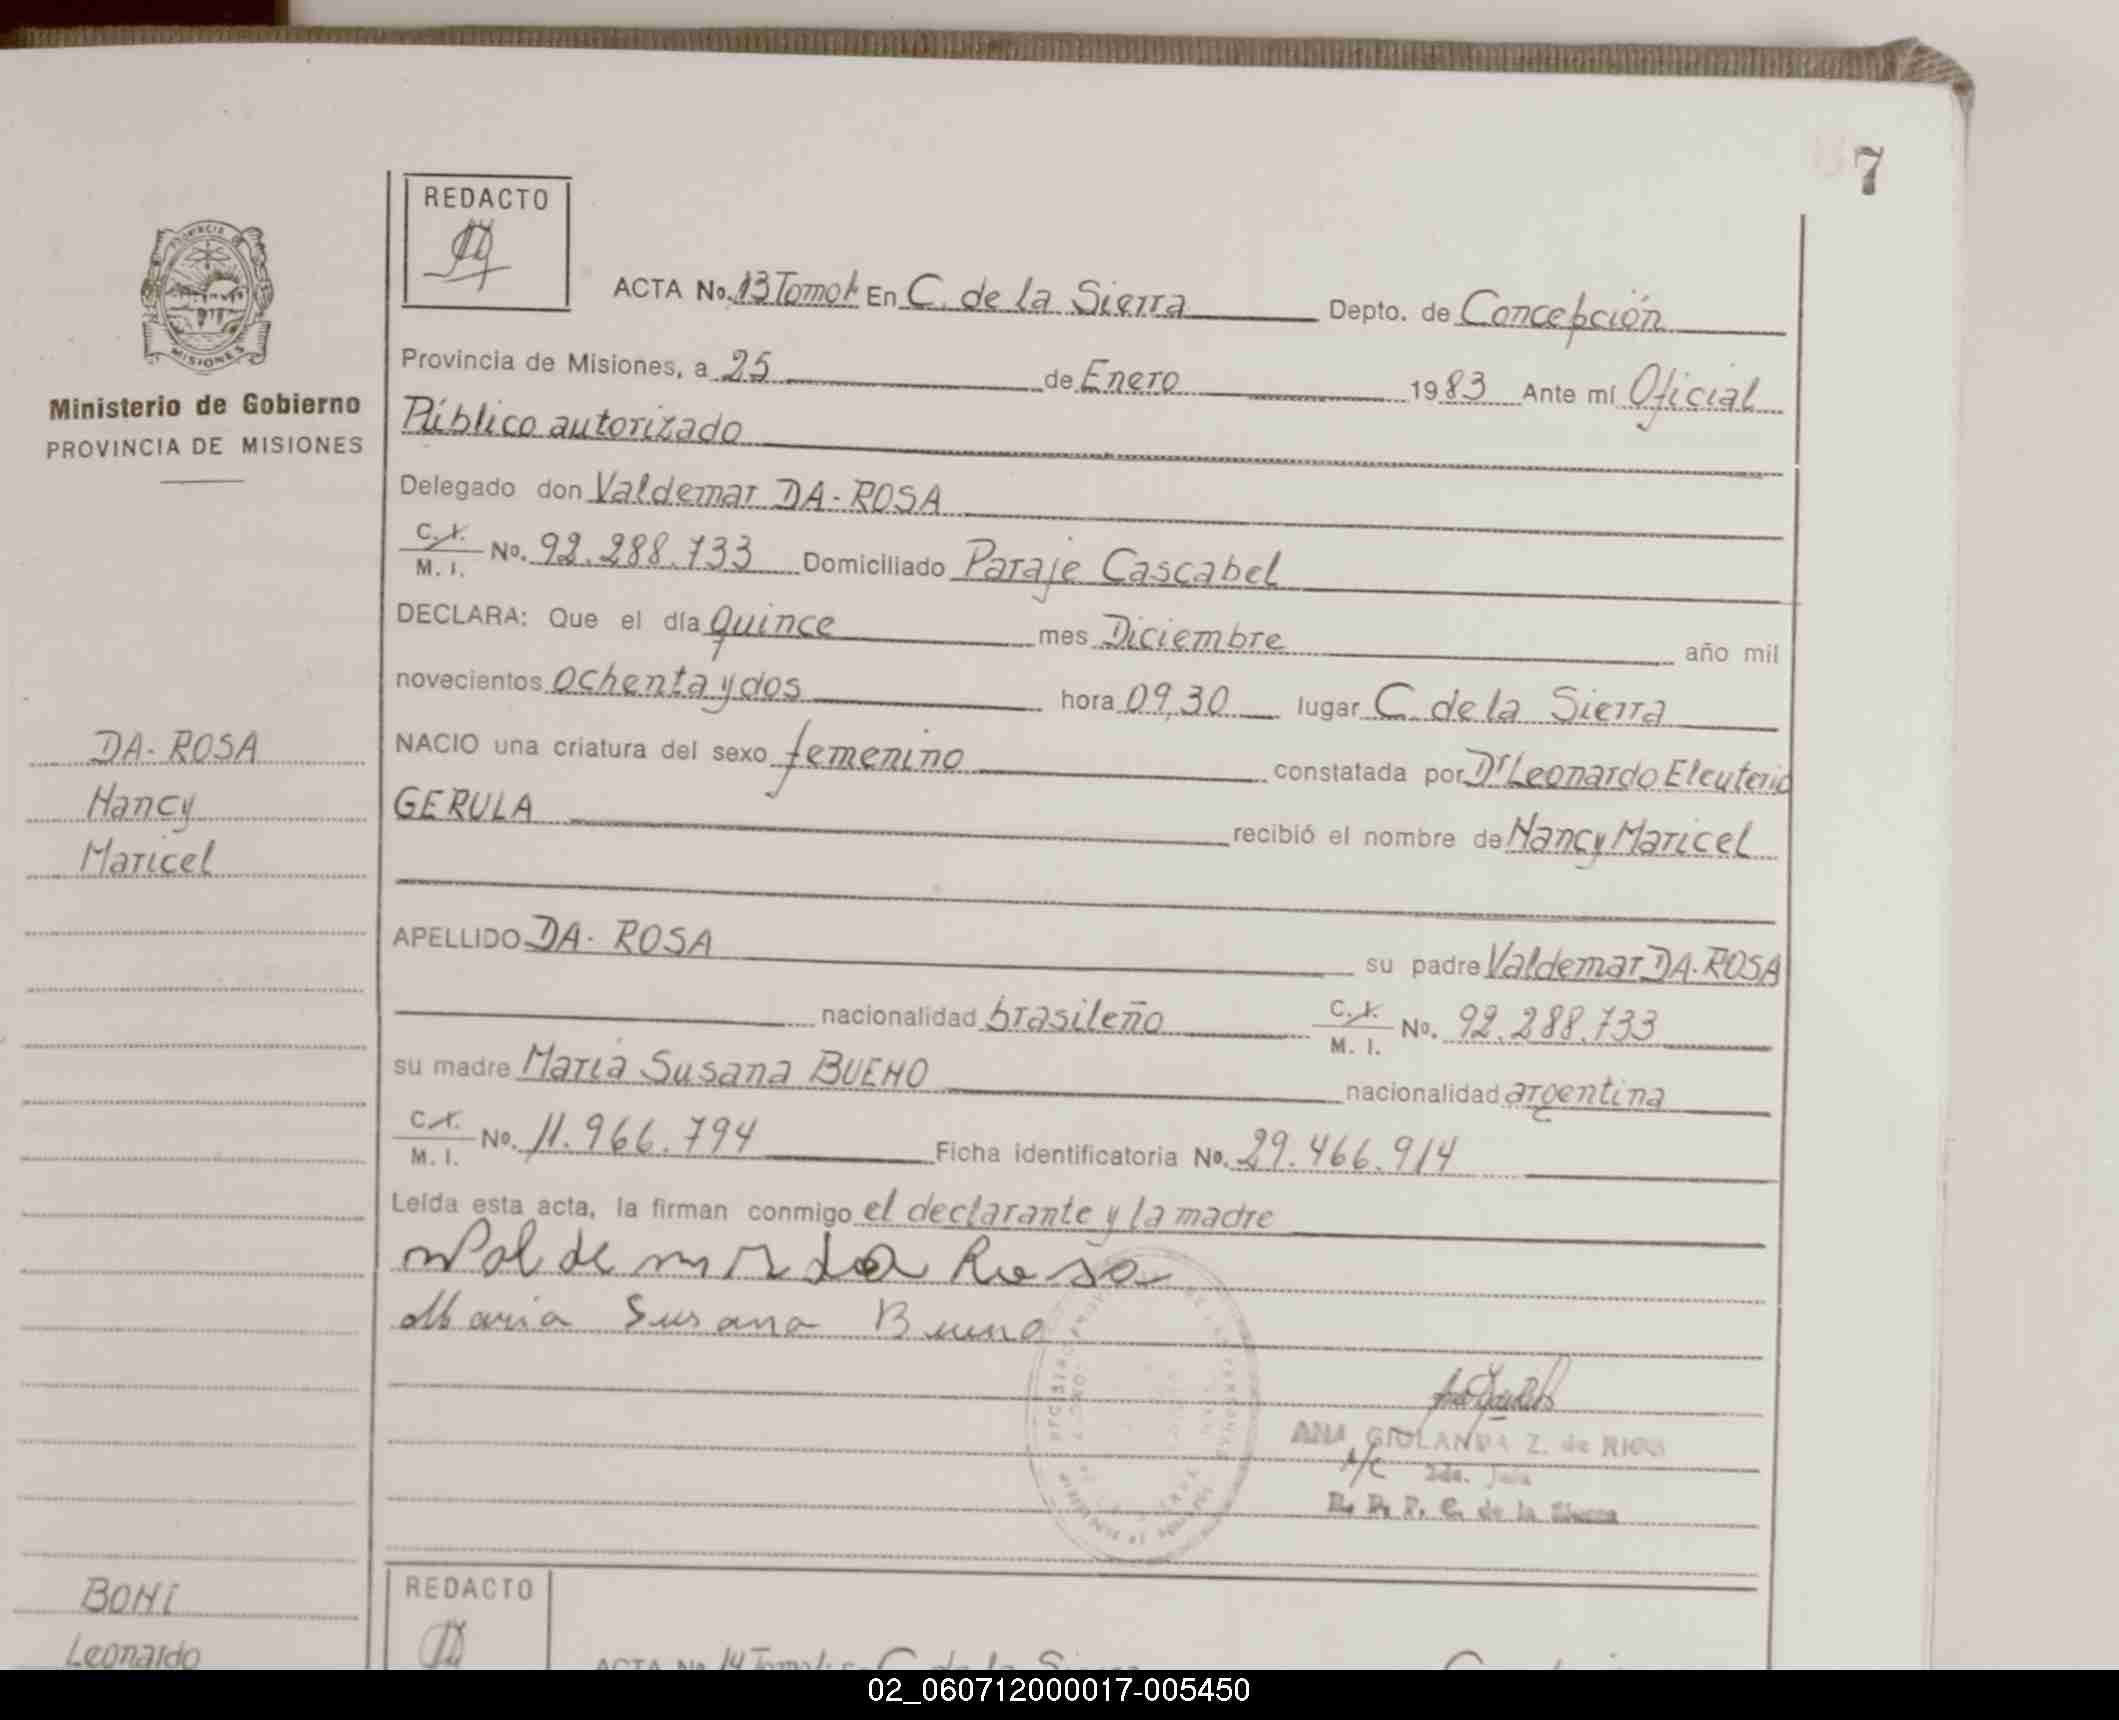 7
REDACTO
PROVINCIA DE
MISIONES
Ministerio de Gobierno
PROVINCIA DE MISIONES
ACTA No. 13 Tomo I En C. de la Sierra Depto. de Concepción
Provincia de Misiones, a 25 de Enero 1983 Ante mí Oficial
Público autorizado
Delegado don Valdemar DA-ROSA
C. I. M. I. No. 92.288.733 Domiciliado Paraje Cascabel
DECLARA: Que el día quince mes Diciembre año mil
novecientos ochenta y dos hora 09,30 lugar C. de la Sierra
NACIO una criatura del sexo femenino constatada por Dr Leonardo Eleuterio
GERULA recibió el nombre de Nancy Maricel
APELLIDO DA-ROSA su padre Valdemar DA-ROSA
nacionalidad brasileño C. I. M. I. No. 92.288.733
su madre María Susana BUENO nacionalidad argentina
C. I. M. I. No. 11.966.794 Ficha identificatoria No. 29.466.914
Leída esta acta, la firman conmigo el declarante y la madre
Maria Susana Bueno
ANA GIOLANDA Z. de RIOS
A/C
C. de la Sierra
DA-ROSA
Nancy
Maricel
BONI
Leonardo
REDACTO
ACTA No. 14 Tomo I En C. de la Sierra
02_060712000017-005450